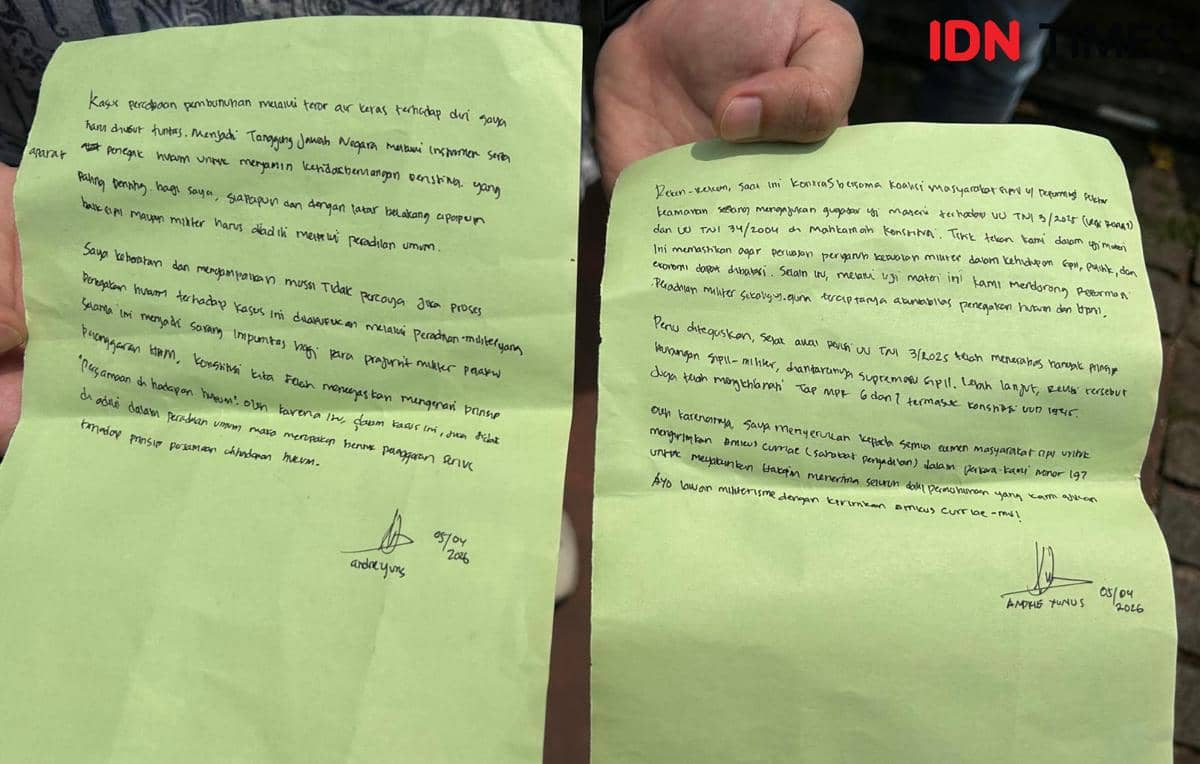 IDN TIMES
Kasus percobaan pembunuhan melalui teror air keras terhadap diri saya
harus diusut tuntas. Menjadi Tanggung Jawab Negara melalui instrumen serta
aparat penegak hukum untuk menjamin ketidakberulangan peristiwa. yang
paling penting bagi saya, siapapun dan dengan latar belakang apapun
baik sipil maupun militer harus diadili melalui peradilan umum.
Saya keberatan dan menyampaikan mosi Tidak percaya jika proses
Penegakan hukum terhadap kasus ini dilakukan melalui Peradilan militer yang
selama ini menjadi sarang impunitas bagi para prajurit militer pelaku
pelanggaran HAM. konstitusi kita telah menegaskan mengenai prinsip
"Persamaan di hadapan hukum". oleh karena itu, dalam kasus ini, jika tidak
di adili dalam peradilan umum maka merupakan bentuk pelanggaran serius
terhadap prinsip persamaan dihadapan hukum.
05/04
2026
andrie yunus
Rekan-rekan, saat ini KontraS bersama Koalisi masyarakat sipil u/ Reformasi Sektor
keamanan sedang mengajukan gugatan uji materi terhadap UU TNI 3/2025
dan UU TNI 34/2004 di Mahkamah Konstitusi. Titik tekan kami dalam uji materi
ini memastikan agar perluasan pengaruh kekuatan militer dalam kehidupan sipil, politik, dan
ekonomi dapat dibatasi. Selain itu, melalui uji materi ini kami mendorong Reformasi
Peradilan militer sekaligus guna terciptanya akuntabilitas penegakan hukum dan
Perlu ditegaskan, sejak awal Revisi UU TNI 3/2025 telah menerabas banyak prinsip
hubungan sipil-militer, diantaranya supremasi sipil. Lebih lanjut, Revisi tersebut
Juga telah mengkhianati Tap MPR 6 dan 7 termasuk konstitusi UUD 1945.
Oleh karenanya, saya menyerukan kepada semua elemen masyarakat sipil untuk
mengirimkan amicus curiae (sahabat pengadilan) dalam perkara kami nomor 197
untuk meyakinkan Hakim menerima seluruh dalil permohonan yang kami ajukan
Ayo lawan militerisme dengan kirimkan amicus curiae -mu!
05/04
2026
ANDRIE YUNUS